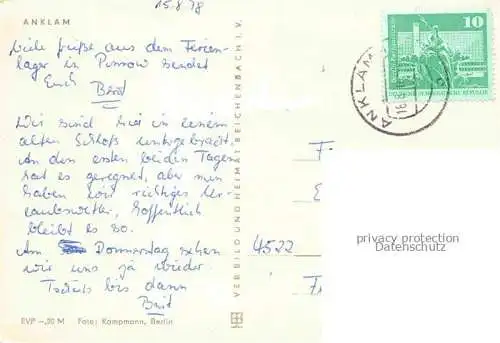 15.8.78
ANKLAM
Viele Grüße aus dem Ferien-
lager in Purrow sendet
Euch Bärd
Wir sind hier in einem
alten Schloß untergebracht.
An den ersten beiden Tagen
hat es geregnet, aber nun
haben wir richtiges Ur-
laubswetter, hoffentlich
bleibt es so.
Am Donnerstag sehen
wir uns ja wieder.
Tschüß bis dann
EVP –,20 M Foto: Kampmann, Berlin
VEB BILD UND HEIMAT REICHENBACH I. V.
10
ANKLAM
F
E
4522
F
privacy protection
Datenschutz